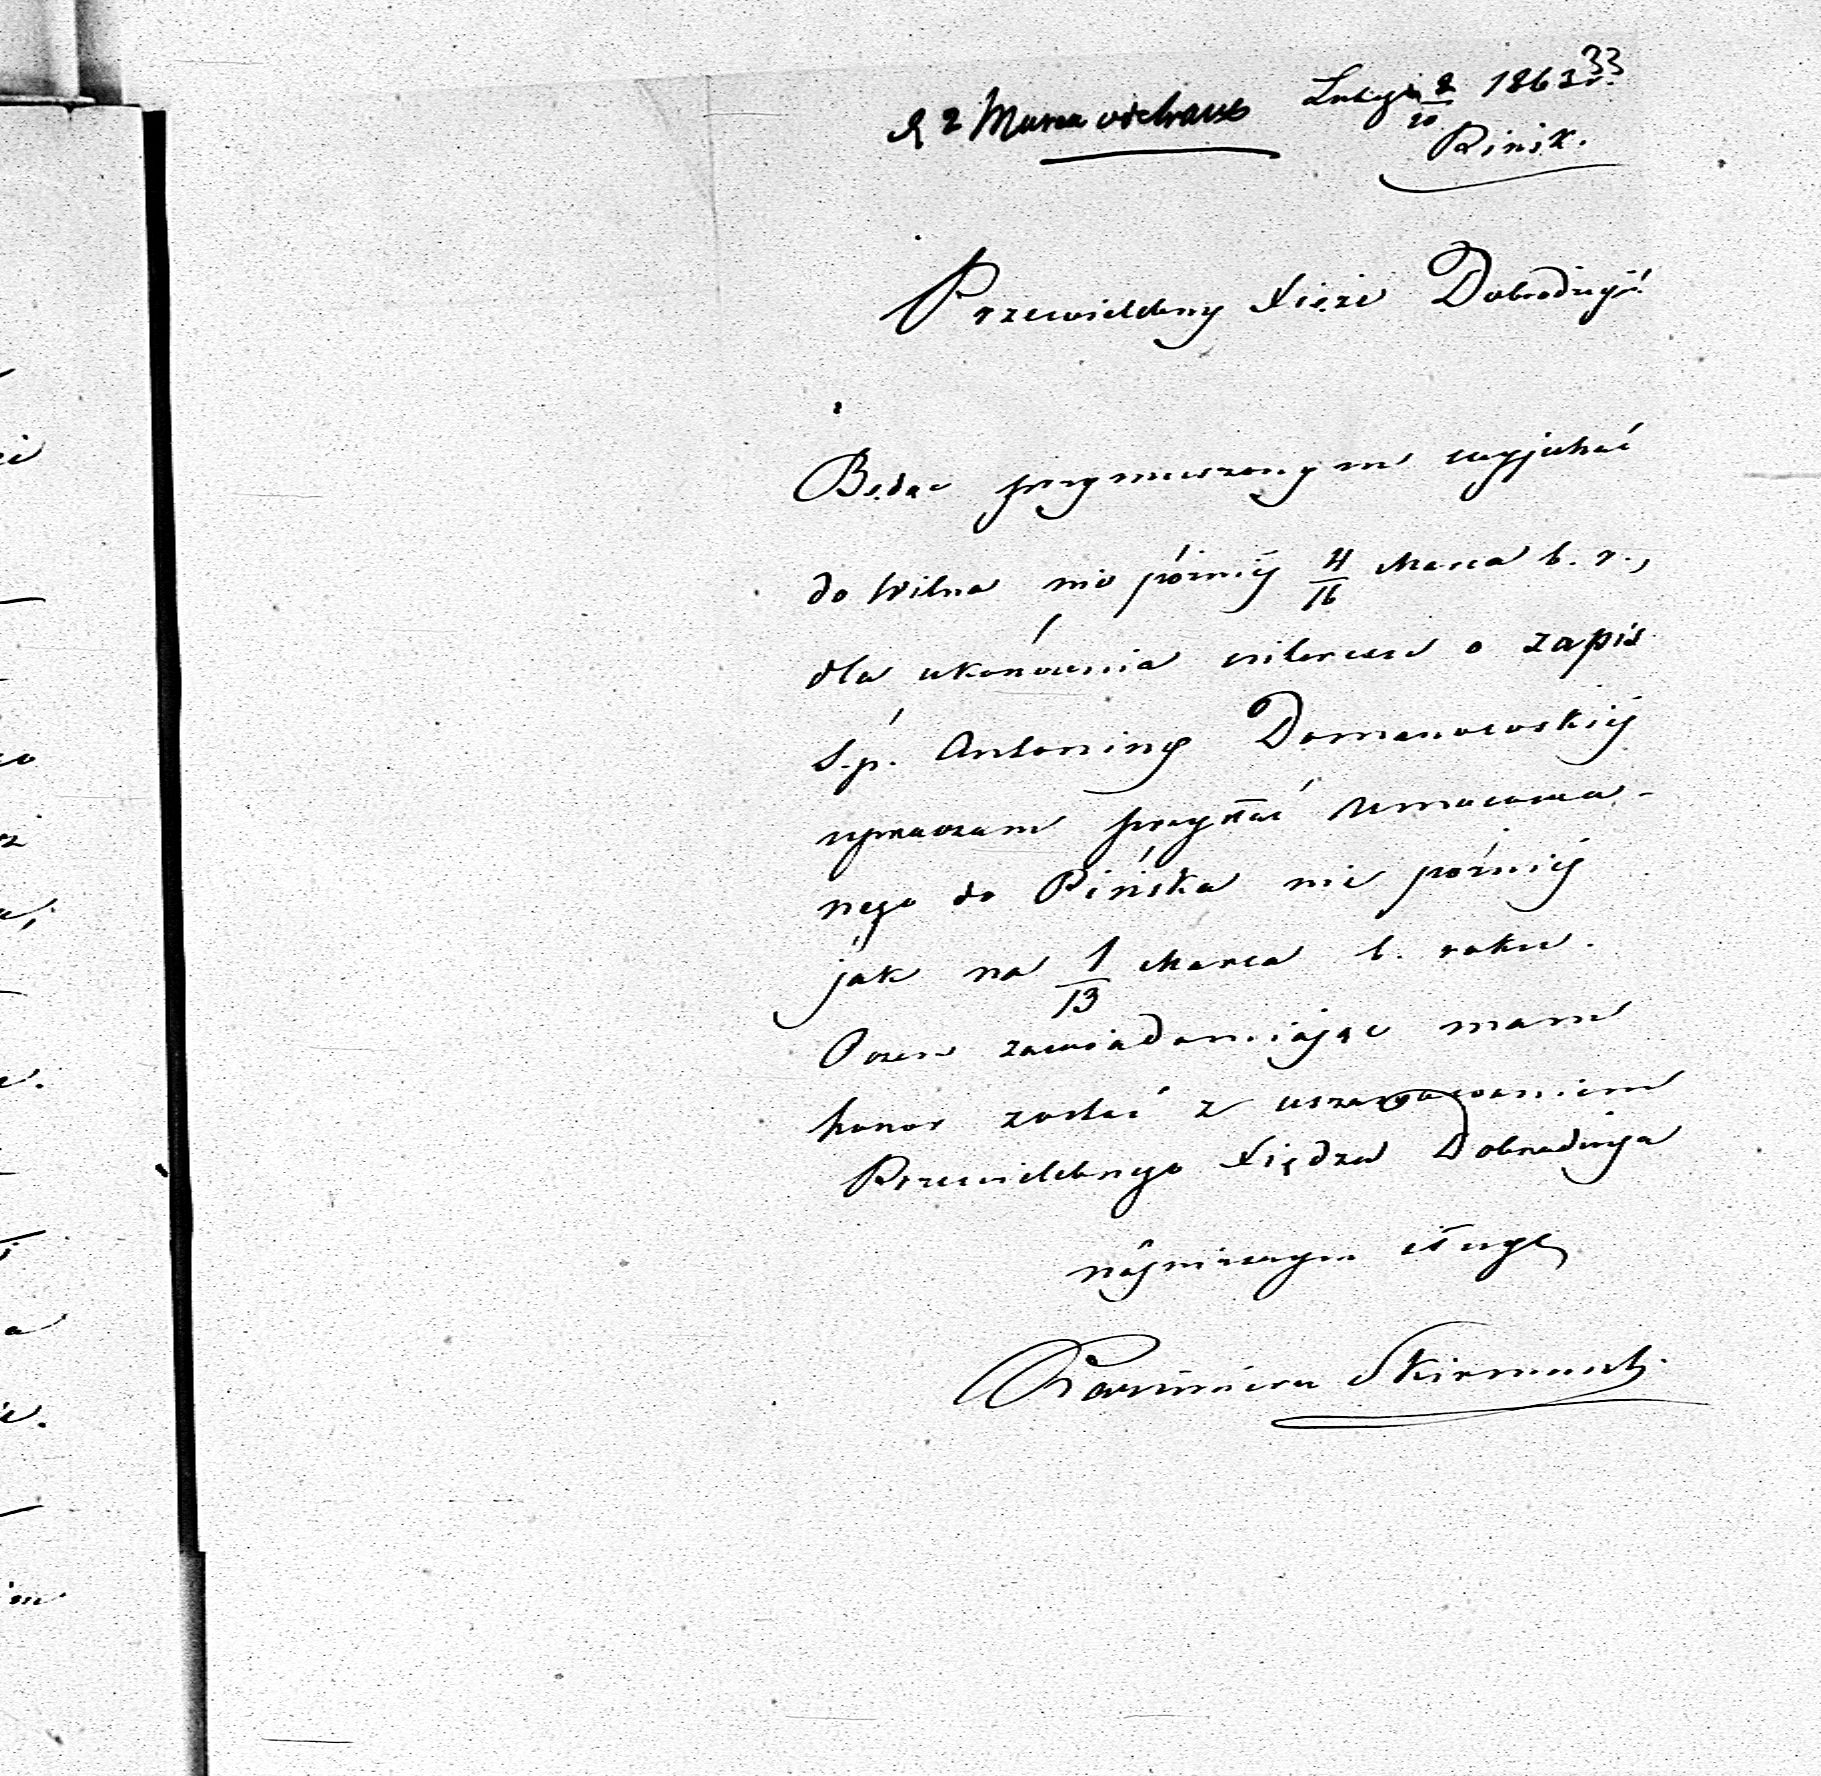 33
2 Marca odebrano
Lutego 8/20 1863 r.
Pińsk.
Przewielebny Xięże Dobrodzieju!
Będąc przymuszonym wyjechać
do Wilna nie późniéj 4/16 Marca b. r.,
dla ukończenia interesu o zapis
ś. p. Antoniny Domanowskiéj
upraszam przysłać umocowa-
nego do Pińska nie późniéj
jak na 1/13 Marca b. roku.
O czem zawiadamiając mam
honor zostać z uszanowaniem
Przewielebnego Xiędza Dobrodzieja
najniższym sługą
Kazimierz Skirmunt.